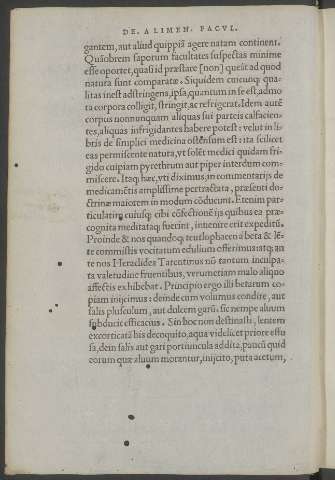 DE ALIMEN. FACVL.
gantem, aut aliud quippiã agere natam continent.
Quãobrem saporum facultates suspectas minime
esse oportet, quasi id præstare [non] queãt ad quod
natura sunt comparatæ. Siquidem cuicunq; qua-
litas inest adstringens, ipsa, quantum in se est, admo
ta corpora colligit, stringit, ac refrigerat. Idem autẽ
corpus nonnunquam aliquas sui partes calfacien-
tes, aliquas infrigidantes habere potest: velut in li-
bris de simplici medicina ostensum est: ita scilicet
eas permiscente natura, vt solẽt medici quidam fri-
gido cuipiam pyrethrum aut piper interdum com-
miscere. Itaq; hæc, vti diximus, in commentarijs de
medicamẽtis amplissime pertractata, præsenti do-
ctrinæ maiorem in modum cõducunt. Etenim par-
ticulatim cuiusq; cibi cõfectionẽ ijs quibus ea præ-
cognita meditataq; fuerint, inuenire erit expeditũ.
Proinde & nos quandoq; teutlophacen a beta & lẽ-
te commistis vocitatum edulium efferimus: atq; an
te nos Heraclides Tarentinus nõ tantum inculpa-
ta valetudine fruentibus, verumetiam malo aliquo
affectis exhibebat. Principio ergo illi betarum co-
piam inijcimus: deinde cum volumus condire, aut
salis plusculum, aut dulcem garũ: sic nempe aluum
subducit efficacius. Sin hoc non destinasti, lentem
excorticatã bis decoquito, aqua videlicet priore effu
sa, dein salis aut gari portiuncula addita, paucũ quid
eorum quæ aluum morantur, inijcito, puta acetum,